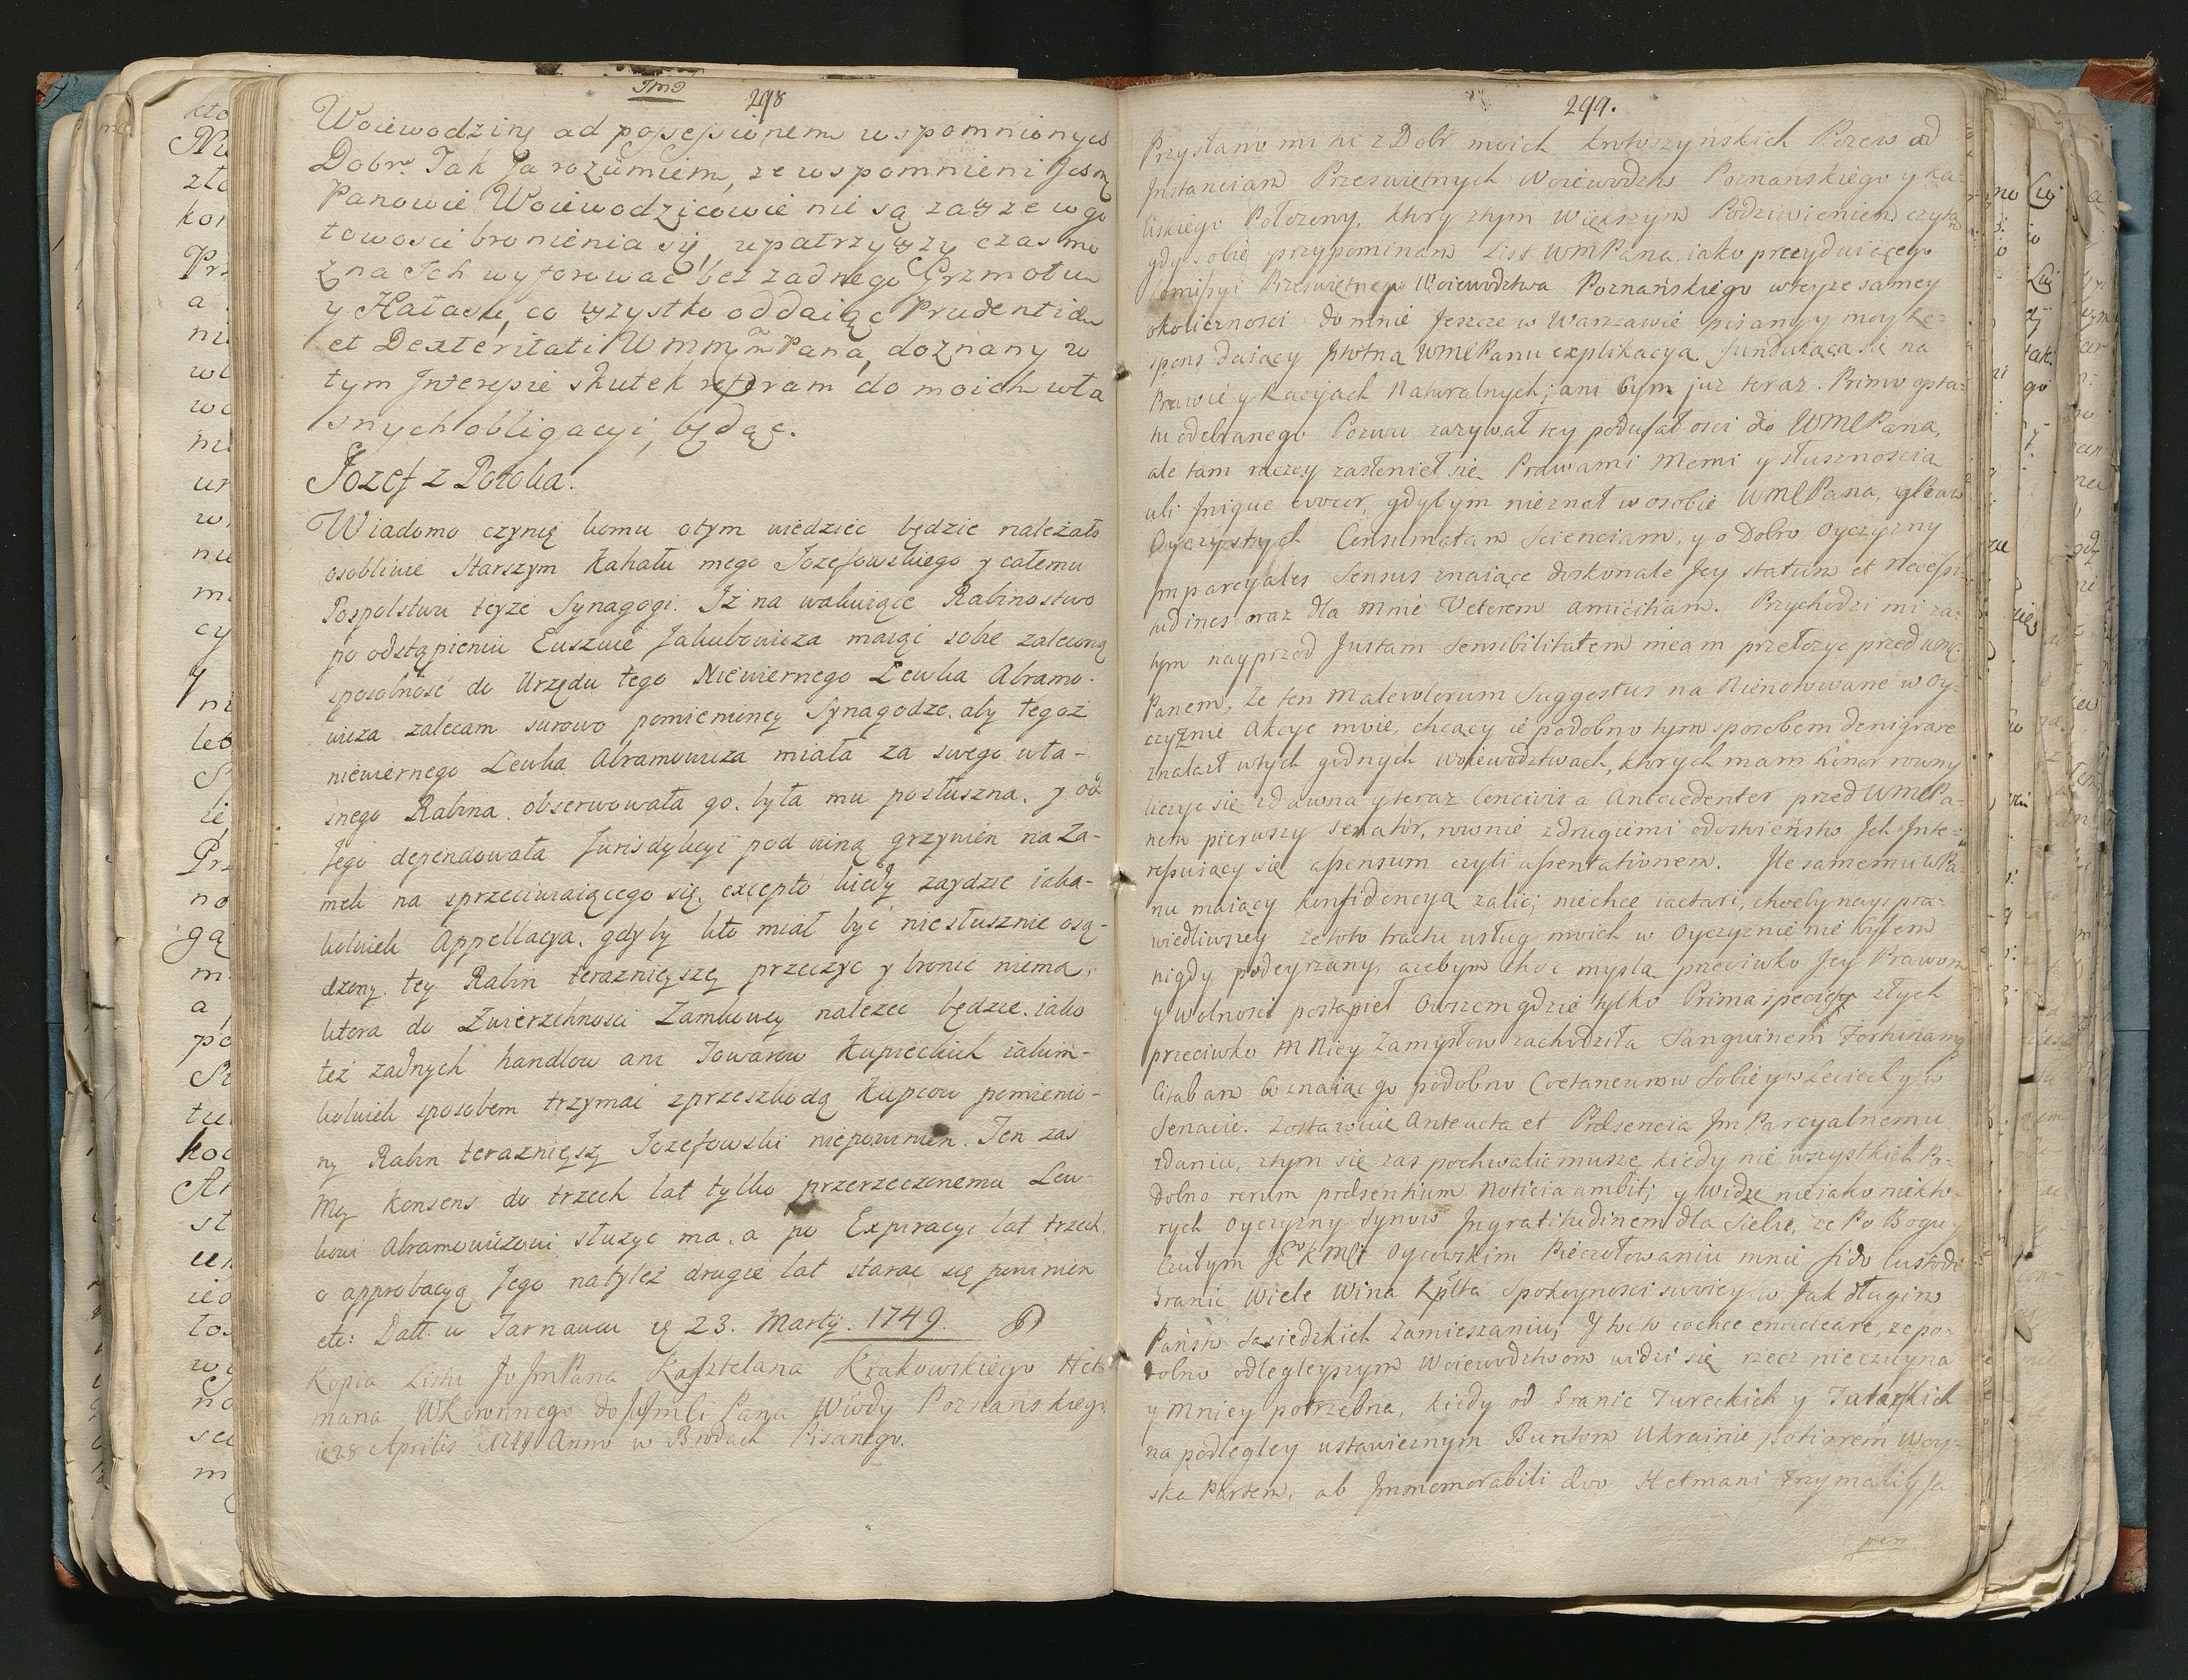 298
Woiewodzinę ad possessionem wspomnionych
Dobr. Tak Ja rozumiem, ze wspomnieni Jchm
Panowie Woiewodzicowie nie są zawsze w go
towosci bronienia się, upatrzywszy czas mo
zna Ich wyforować bez zadnego Grzmotu
y Hałasu, co wszystko oddaiąc Prudentiae
et Dexteritati Wmm Pana, doznany w
tym Interessie skutek referam do moich wła
snych obligacyi, będąc.
Jozef z Potoka.
Wiadomo czynię komu otym wiedziec będzie nalezało
osobliwie Starszym Kahału mego Jozefowskiego y całemu
Pospolstwu teyze Synagogi. Iż na wakuiące Rabinostwo
po odstąpieniu Euszwie Jakubowicza maiąc sobie zaleconą
sposobność do Urzędu tego Niewiernego Lewka Abramo-
wicza zalecam surowo pomienioney Synagodze, aby tegoż
niewiernego Lewka Abramowicza miała za swego wła-
snego Rabina, obserwowała go, była mu posłuszna, y od
Jego dependowała Jurisdykcyi pod winą grzywien na Za-
mek na sprzeciwiaiącego się, excepto kiedy zaydzie iaka-
kolwiek Appellacya, gdyby kto miał być niesłusznie osą-
dzony, tey Rabin teraznieyszy przeczyc y bronic niema,
ktora do Zwierzchnosci Zamkowey nalezec będzie, iako
też zadnych handlow ani Towarow Kupieckich iakim-
kolwiek sposobem trzymac z przeszkodą Kupcow pomienio-
ny Rabin teraznieyszy Jozefowski niepowinien. Ten zas
Moy Konsens do trzech lat tylko przerzeczonemu Lew-
kowi Abramowiczowi służyc ma, a po Expiracyi lat trzech
o approbacyą Jego natyleż drugie lat starac się powinien
etc: Datt. w Tarnawcu 23. Martij. 1749.
Kopia Listu Jo JmPana Kasztelana Krakowskiego Het-
mana WKoronnego do Pana Wdy Poznanskiego
28 Aprilis 1749 Anno w Brodach Pisanego.
299.
Przysłano mi tu z Dobr moich Krotoszyńskich Pozew ad
Instantiam Przeswietnych Woiewodztw Poznańskiego y Ka-
liskiego Położony, ktory z tym większym Podziwieniem czytam
gdy sobie przypominam List WMPana, iako prezyduiącego
Comissyi Przeswietnego Woiewodztwa Poznańskiego w teyze samey
okolicznosci do mnie Jeszcze w Warszawie pisany y moy Re-
spons daiący Istotną WMPanu explikacyą funduiącą się na
Prawie y Racyach Naturalnych; ani bym juz teraz. Primo
tu odebranego Pozwu zazywał tey poufałosci do WMPana,
ale tam raczey zasłonieł się Prawami Memi y słusznoscią
ubi Inique vocor, gdybym nieznał w osobie WMPana, y Praw
Oyczystych Consumatam Scienciam, y o Dobro Oyczyzny
Imparcyales Sensus znaiące doskonale Jey statum et necessi-
tudines oraz dla Mnie Veterem amicitiam. Przychodzi mi za-
tym nayprzod Justam Sensibilitatem meam przełozyc przed WM
Panem, że ten Malevolorum Suggestus na Nienotowane w Oy-
czyznie Akcye moie, chcący ie podobno tym sposobem denigrare
znalazł w tych godnych Woiewodztwach, ktorych mam honor rowny
liczyc się zdawna y teraz Concivis a Antecedenter przed WMPa-
nem pierwszy Senator, rownie z drugiemi Ich Inte-
ressuiący się assensum czyli assentationem. Ile samemu WPa-
nu maiący konfidencyą zalic; niechce iactari, choćby nays pra-
wiedliwszey ze toto tractu usług moich w Oyczyznie nie byłem
nigdy podeyrzany, azebym choc myslą przeciwko Jey Prawom
y Wolnosci postąpieł Owszem gdzie tylko Prima species złych
przeciwko Niey Zamysłow zachodziła Sanguinem Fortunam
Senacie. Zostawuie Anteacta et Praesencia ImParcyalnemu
zdaniu, z tym się zas pochwalic muszę kiedy nie wszystkich Po-
dobno rerum praesentium Noticia ambit; y widzę nieiako niekto-
rych Oyczyzny Synow Ingratitudinem dla Siebie, ze Po Bogu y
Czułym Oycowskim Pieczołowaniu mnie fido custodi
Granic wiele wina Rpltta Spokoynosci swoiey w Jak długim
Państw Sasiedzkich Zamieszaniu; Y to to cochce enucleare, ze po-
dobno odległeyszym Woiewodztwom widzi się rzecz nieczuyna
y Mniey potrzebna, kiedy od Granic Tureckich y Tatarskich
na podległey ustawicznym Buntom Ukrainie potiorem Woy-
ska Partem, ab Immemorabili dwo Hetmani Trzymali y Ja